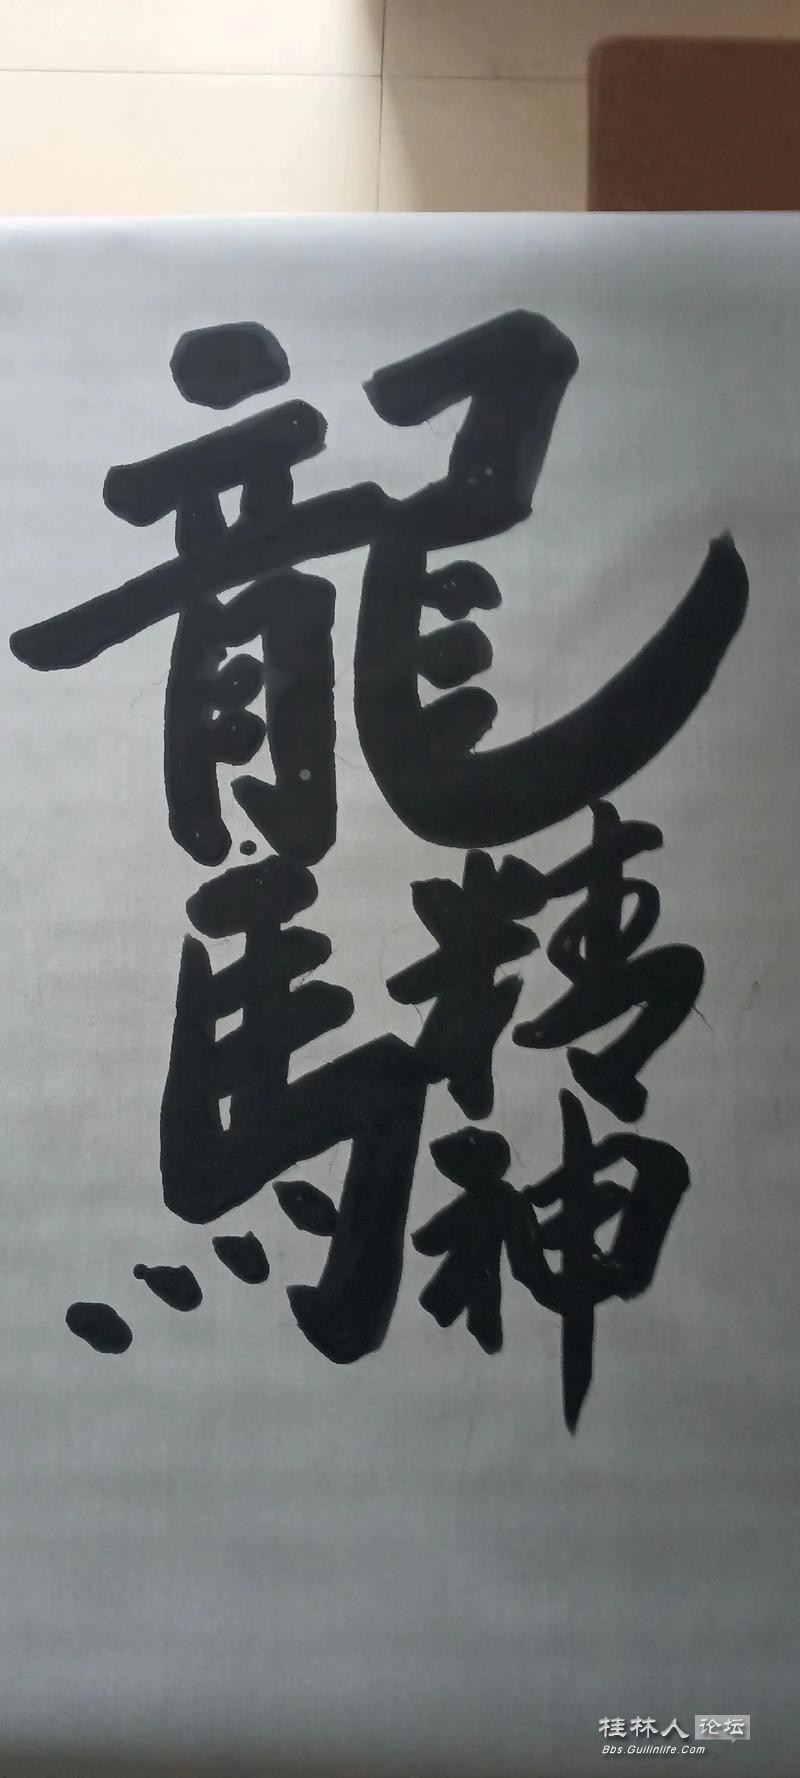 龍馬精神
桂林人论坛
Bbs.Guilinlife.Com